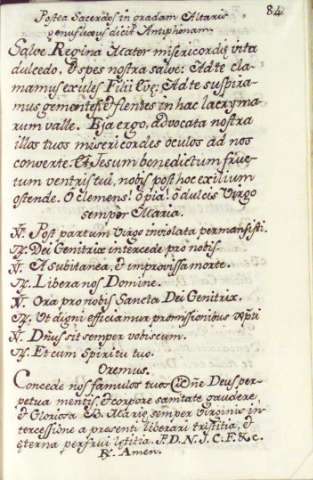 84
Postea Sacerdos in oradam Altaris
genuflexus dicit Antiphonam.
Salve Regina Mater misericordiæ vita
dulcedo. Et spes nostra salve: Ad te cla
mamus exules Filii Evę: Ad te suspira-
mus gementes, & flentes in hac lacryma-
rum valle. Eja ergo, advocata nostra
illos tuos misericordes oculos ad nos
converte. Et Jesum benedictum fruc-
tum ventris tui, nobis post hoc exilium
ostende. O clemens! ô pia! ô dulcis Virgo
semper Maria.
℣. Post partum Virgo inviolata permansisti.
℟. Dei Genitrix intercede pro nobis.
℣. A Subitanea, & improvissa morte.
℟. Libera nos Domine.
℣. Ora pro nobis Sancta Dei Genitrix.
℟. Ut digni efficiamur promissionibus Xpti
℣. Dñus sit semper vobiscum.
℟. Et cum Spiritu tuo.
Oremus.
Concede nos famulos tuos Dñe Deus per-
petua mentis, & corpore sanitate gaudere,
& Gloriosa B. Mariæ semper Virginis in-
tercessione a presenti liberari tristitia, &
eterna perfrui lętitia. P. D. N. J. C. F. & c.
℟. Amen.